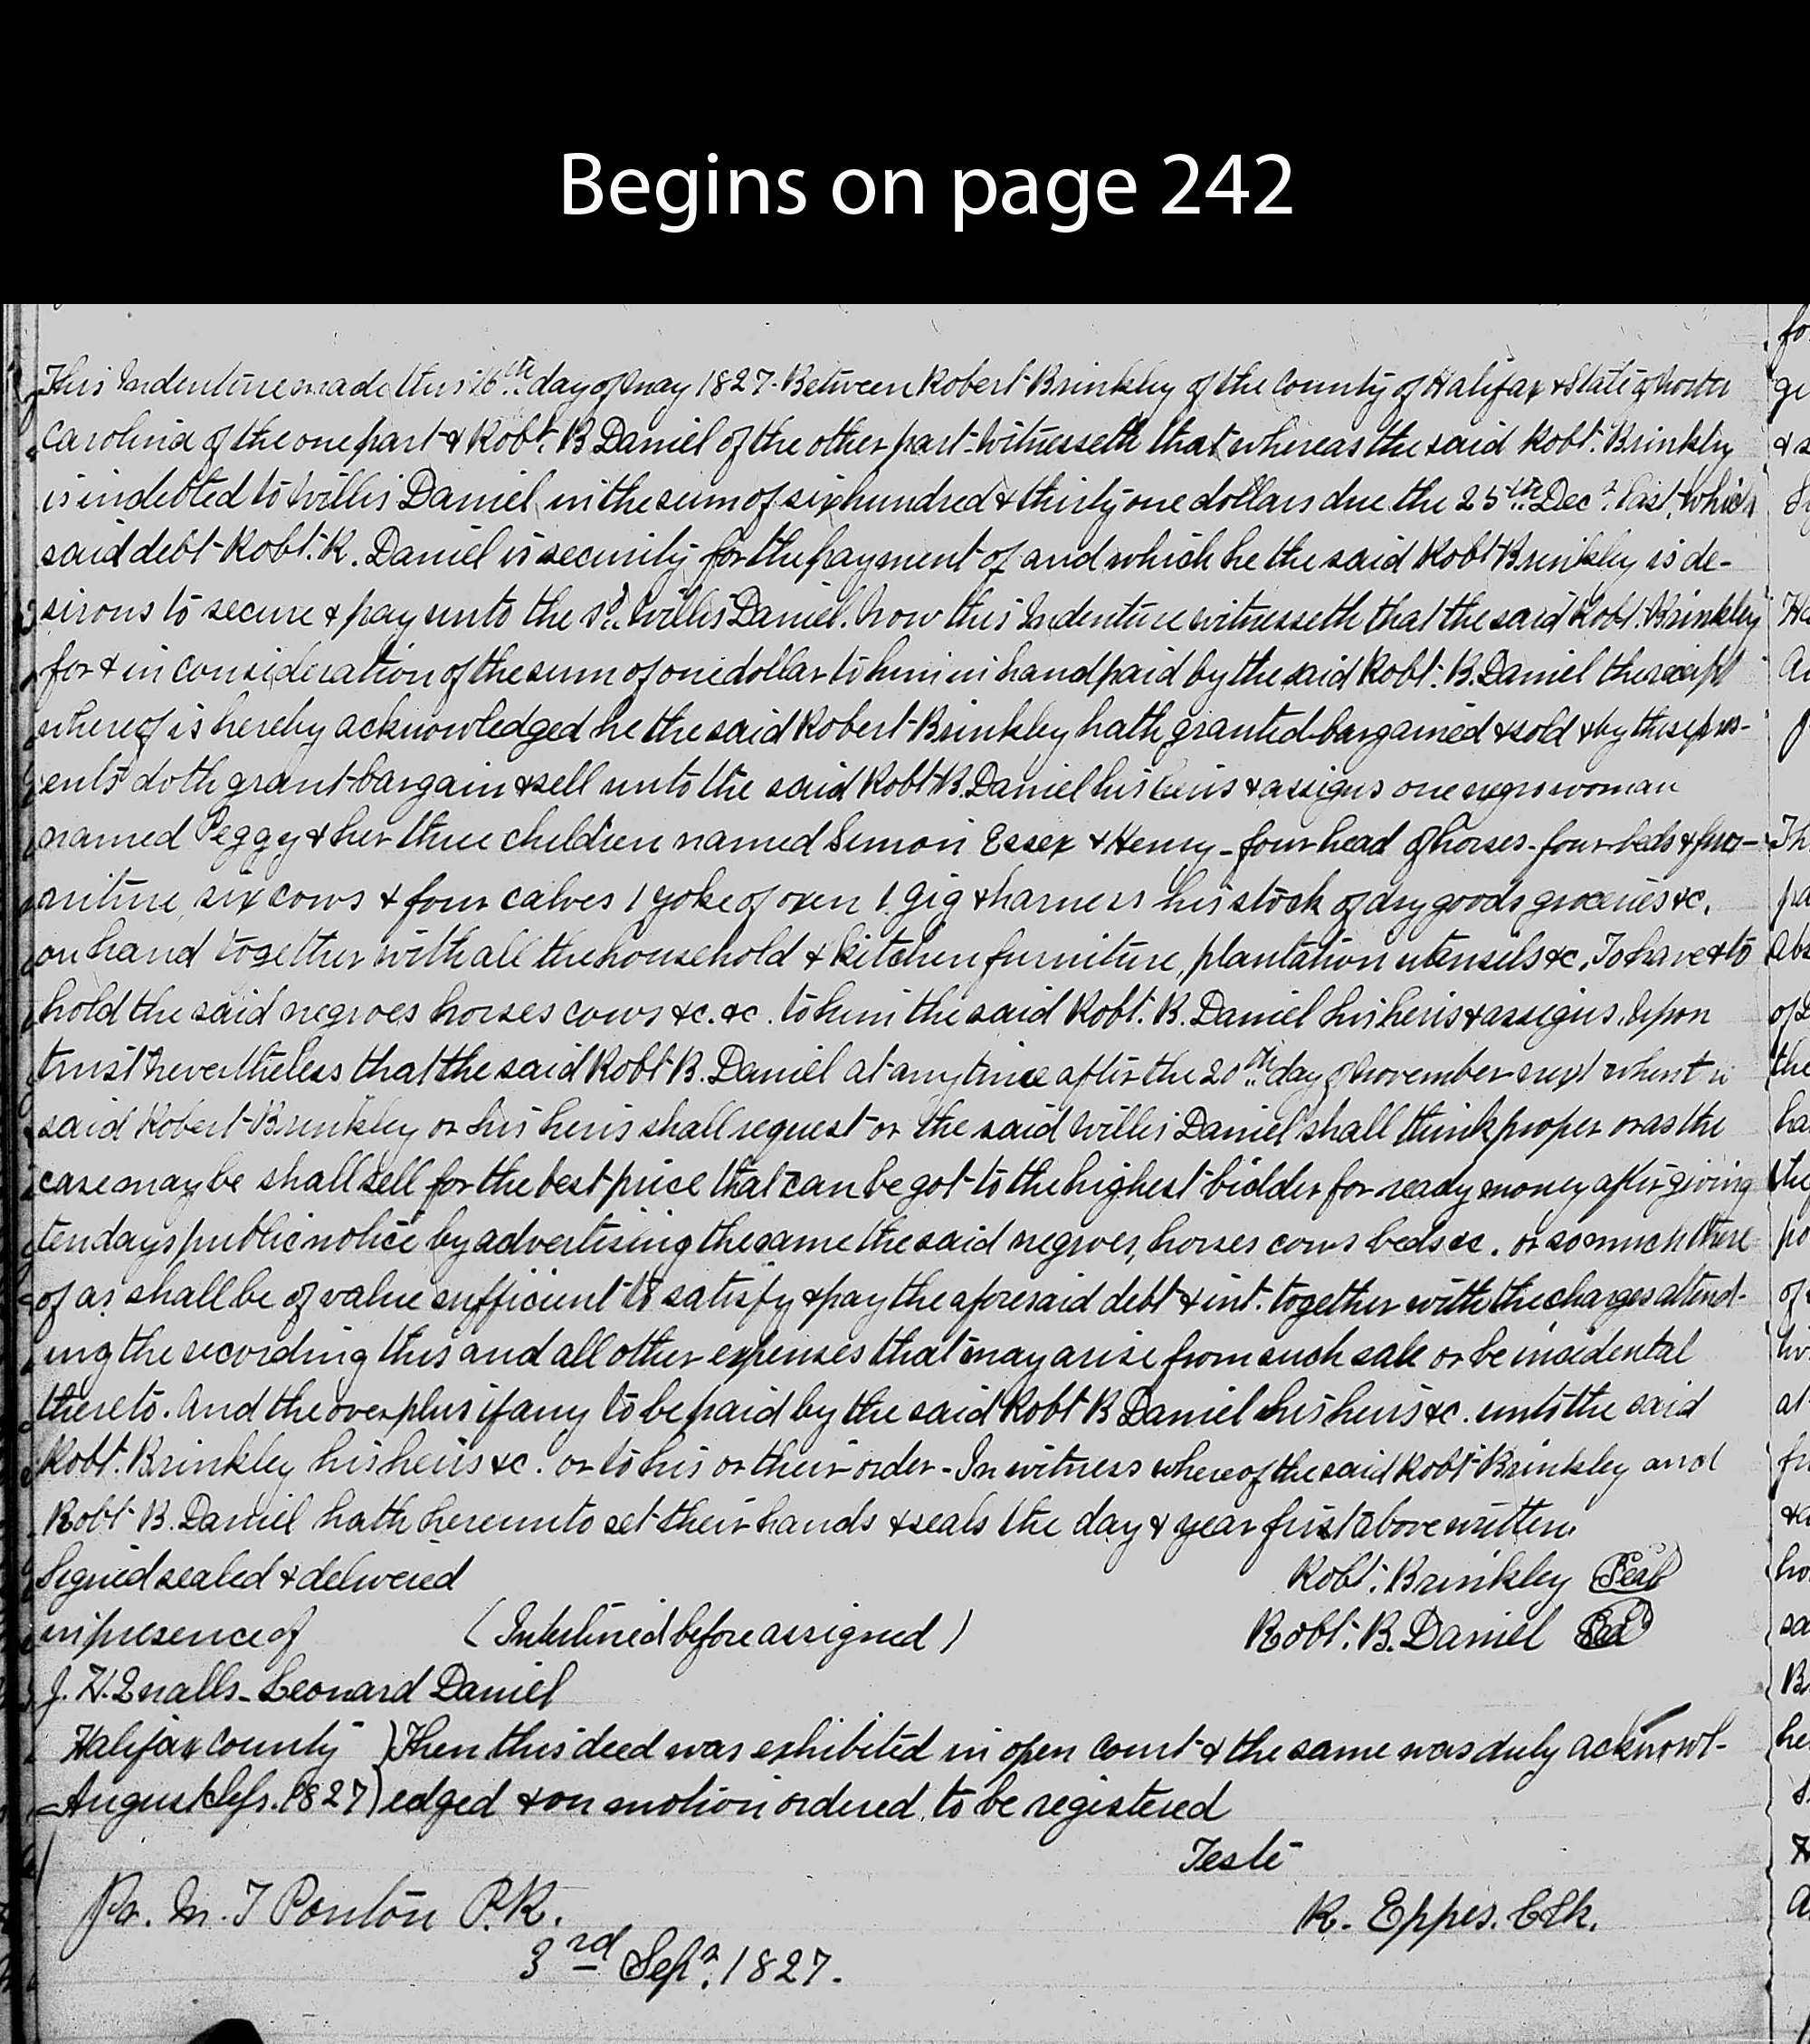 Begins on page 242
This Indenture made this 16th day of May 1827. Between Robert Brinkley of the County of Halifax & State of North
Carolina of the one part & Robt. B Daniel of the other part. Witnesseth that whereas the said Robt. Brinkley
is indebted to Willis Daniel in the sum of six hundred & thirty one dollars due the 25th Decr. last, which
said debt Robt. R. Daniel is security for the payment of and which he the said Robt Brinkley is de-
sirous to secure & pay unto the sd. Willis Daniel. Now this Indenture witnesseth that the said Robt. Brinkley
for & in consideration of the sum of one dollar to him in hand paid by the said Robt. B. Daniel the receipt
whereof is hereby acknowledged he the said Robert Brinkley hath granted bargained & sold & by these pres-
ents doth grant bargain & sell unto the said Robt B. Daniel his heirs & assigns one negro woman
named Peggy & her three children named Simon Essex & Henry - four head of horses - four beds & fur-
niture six cows & four calves 1 yoke of oxen 1 gig & harness his stock of dry goods groceries &c.
on hand together with all the household & kitchen furniture, plantation utensils &c. To have & to
hold the said negroes horses cows &c. &c. to him the said Robt. B. Daniel his heirs & assigns. Upon
trust nevertheless that the said Robt B. Daniel at any time after the 20th day of November next when the
said Robert Brinkley or his heirs shall request or the said Willis Daniel shall think proper or as the
case may be shall sell for the best price that can be got to the highest bidder for ready money after giving
ten days public notice by advertising the same the said negroes, horses cows beds &c. or so much there
of as shall be of value sufficient to satisfy & pay the aforesaid debt & int. together with the charges attend-
ing the recording this and all other expenses that may arise from such sale or be incidental
thereto. And the overplus if any to be paid by the said Robt B Daniel his heirs &c. unto the said
Robt. Brinkley his heirs &c. or to his or their order - In witness whereof the said Robt Brinkley and
Robt B. Daniel hath hereunto set their hands & seals the day & year first above written.
Signed sealed & delivered Robt. Brinkley Seal
in presence of (Interlined before assigned) Robt. B. Daniel Seal
J. H. Qualls - Leonard Daniel
Halifax County ) Then this deed was exhibited in open Court & the same was duly acknowl-
August Sefs. 1827 ) edged & on motion ordered to be registered
Teste
Pr. M. T Ponton P.R. R. Eppes. Clk.
3rd Sepr. 1827.